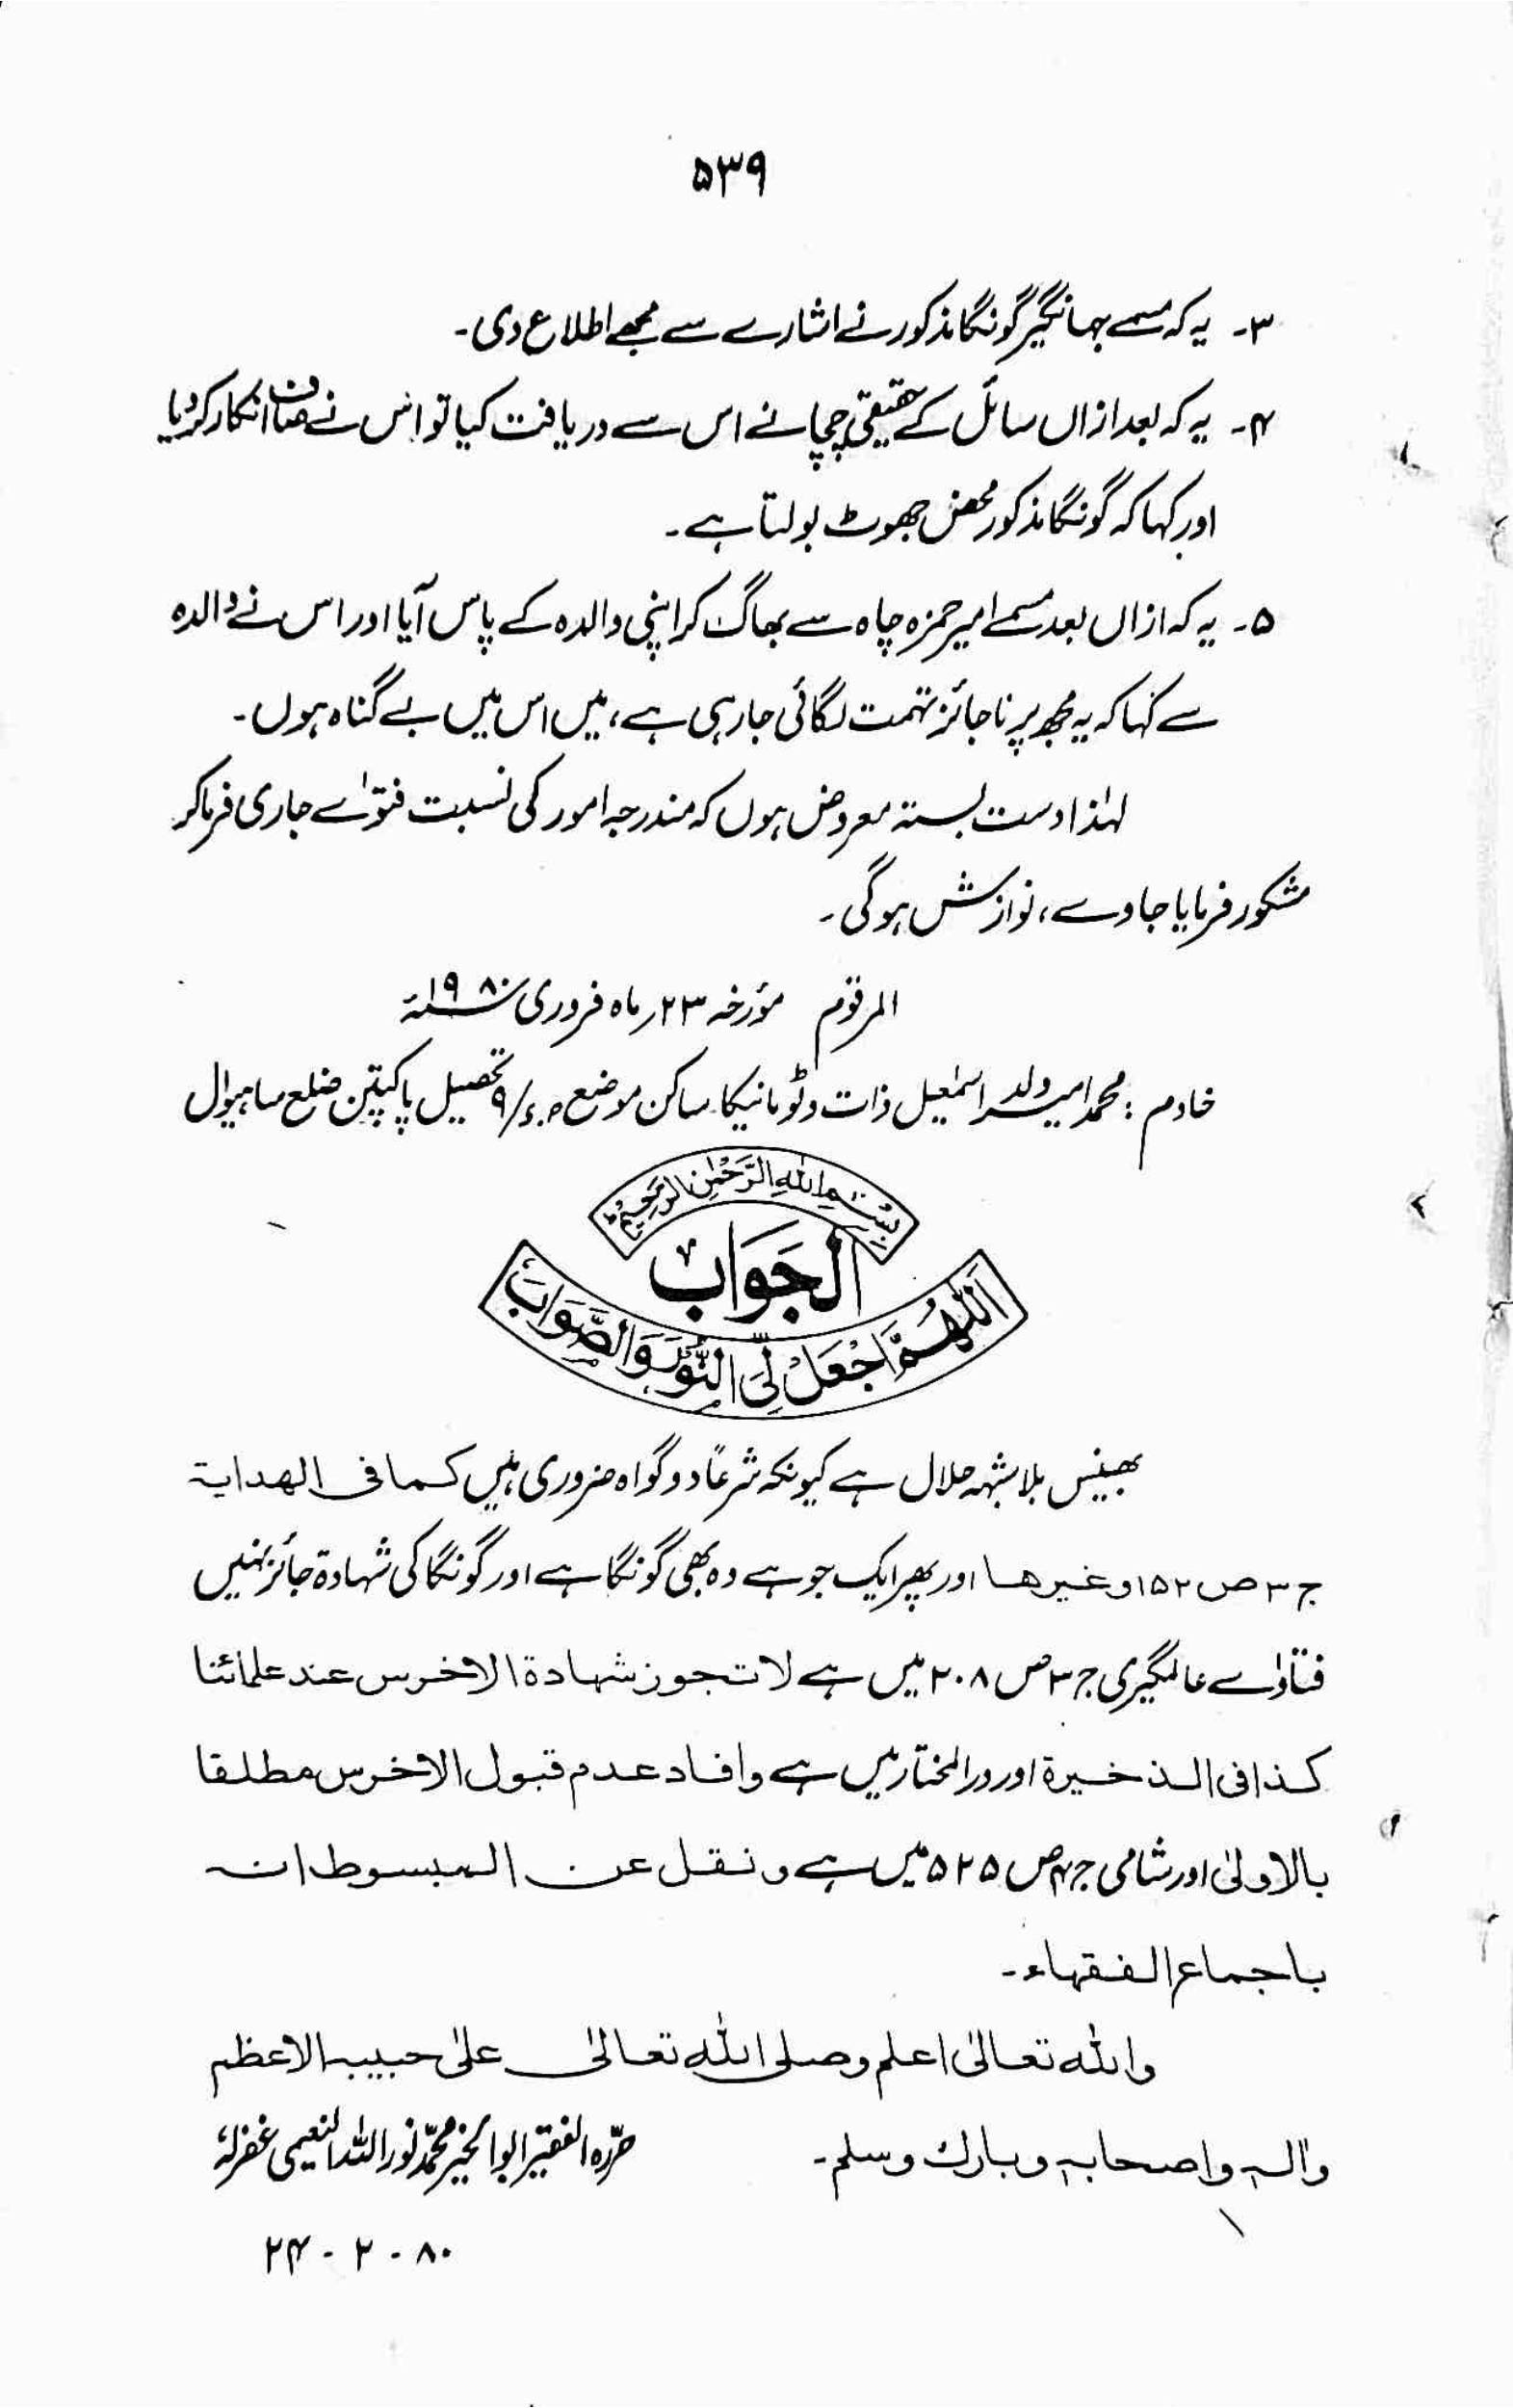 ۵۳۹
۳۔ یہ کہ مسمے جہانگیر گونگا مذکور نے اشارے سے مجھے اطلاع دی۔
۴۔ یہ کہ بعد ازاں سائل کے حقیقی چچا نے اس سے دریافت کیا تو اس نے صاف انکار کر دیا
اور کہا کہ گونگا مذکور محض جھوٹ بولتا ہے۔
۵۔ یہ کہ ازاں بعد مسمے امیر حمزہ چاہ سے بھاگ کر اپنی والدہ کے پاس آیا اور اس نے والدہ
سے کہا کہ یہ مجھ پر ناجائز تہمت لگائی جا رہی ہے، میں اس میں بے گناہ ہوں۔
لہٰذا دست بستہ معروض ہوں کہ مندرجہ امور کی نسبت فتوٰے جاری فرما کر
مشکور فرمایا جاوے، نوازش ہوگی۔
المرقوم مؤرخہ ۲۳؍ ماہ فروری ۱۹۸۰ء
خادم : محمد امیر ولد اسمٰعیل ذات وٹو مانیکا ساکن موضع تحصیل پاکپتن ضلع ساہیوال
بِسْمِ اللهِ الرَّحْمٰنِ الرَّحِيْمِ
الجَوَابُ
اَللّٰهُمَّ اجْعَلْ لِّيَ النُّوْرَ وَالصَّوَابَ
بھینس بلاشبہہ حلال ہے کیونکہ شرعًا دو گواہ ضروری ہیں کما فی الهدایة
ج ۳ ص ۱۵۲ وغیرها اور پھر ایک جو ہے وہ بھی گونگا ہے اور گونگا کی شہادۃ جائز نہیں
فتاوٰے عالمگیری ج ۳ ص ۲۰۸ میں ہے لا تجوز شهادة الاخرس عند علمائنا
کذا فی الذخیرة اور درالمختار میں ہے وافاد عدم قبول الاخرس مطلقا
بالاولیٰ اور شامی ج ۴ ص ۵۲۵ میں ہے ونقل عن المبسوط انه
باجماع الفقهاء۔
والله تعالیٰ اعلم وصلی الله تعالیٰ علیٰ حبیبه الاعظم
واٰله واصحابه وبارك وسلم۔
حرّرہ الفقیر ابوالخیر محمّد نور اللہ النعیمی غفرلہٗ
۲۴ - ۲ - ۸۰